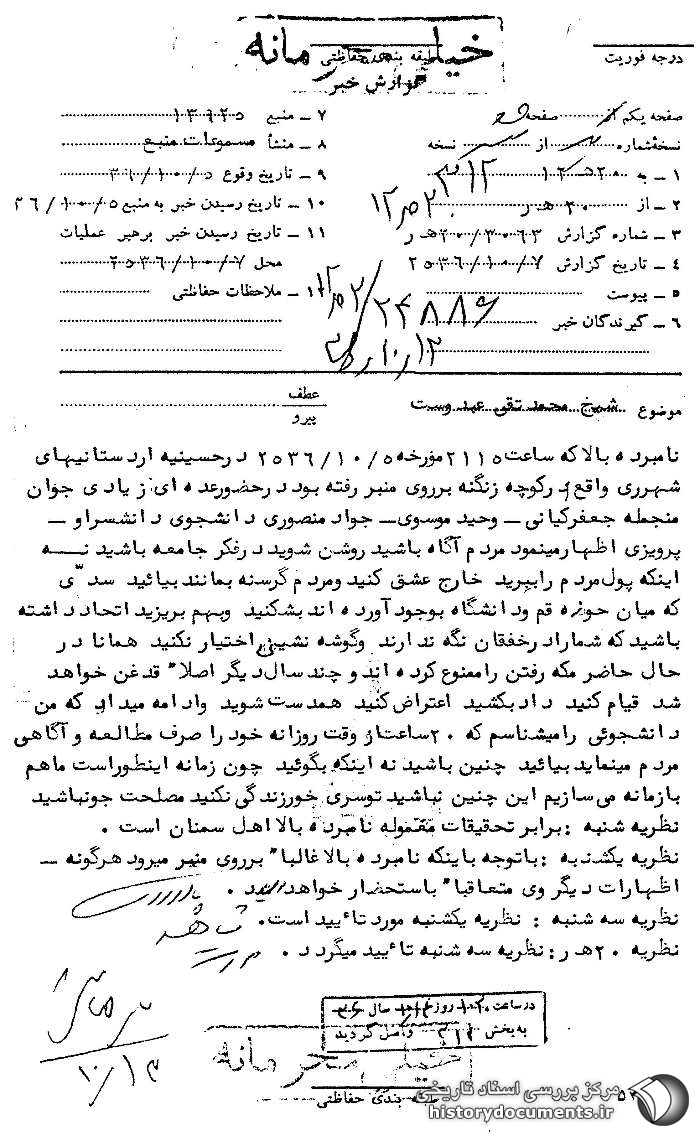 خیلی محرمانه
طبقه بندی حفاظتی
گزارش خبر
درجه فوریت
صفحه یکم از صفحه
نسخهٔ شماره از نسخه
۱ – به ۳۱۲
۲ – از ۲۰ هـ ر
۳ – شماره گزارش ۲۰/۳۰۶۳ هـ ر
۴ – تاریخ گزارش ۲۵۳۶/۱۰/۷
۵ – پیوست
۶ – گیرندگان خبر
۷ – منبع ۱۳۹۲۵
۸ – منشأ مسموعات منبع
۹ – تاریخ وقوع ۳۶/۱۰/۵
۱۰ – تاریخ رسیدن خبر به منبع ۳۶/۱۰/۵
۱۱ – تاریخ رسیدن خبر برهبر عملیات
محل ۲۵۳۶/۱۰/۷
۱۲ – ملاحظات حفاظتی
۲۴۸۸۶
موضوع شیخ محمد تقی عبدوست
عطف
پیرو
نامبرده بالا که ساعت ۲۱۱۵ مورخه ۲۵۳۶/۱۰/۵ در حسینیه اردستانیهای
شهرری واقع در کوچه زنگنه برروی منبر رفته بود در حضور عده ای زیادی جوان
منجمله جعفرکیانی – وحید موسوی – جواد منصوری دانشجوی دانشسرا و –
پرویزی اظهارمینمود مردم آگاه باشید روشن شوید در فکر جامعه باشید نه
اینکه پول مردم را ببرید خارج عشق کنید ومردم گرسنه بمانند بیائید سدّی
که میان حوزه قم ودانشگاه بوجود آورده اند بشکنید وبهم بریزید اتحاد داشته
باشید که شمارادر خفقان نگه ندارند وگوشه نشینی اختیار نکنید همانا در
حال حاضر مکه رفتن را ممنوع کرده اند و چند سال دیگر اصلا" قدغن خواهد
شد قیام کنید داد بکشید اعتراض کنید همدست شوید وادامه میداد که من
دانشجوئی رامیشناسم که ۲۰ساعت از وقت روزانه خود را صرف مطالعه و آگاهی
مردم مینماید بیائید چنین باشید نه اینکه بگوئید چون زمانه اینطور است ماهم
بازمانه می سازیم این چنین نباشید توسری خور زندگی نکنید مصلحت جونباشید
نظریه شنبه : برابر تحقیقات مقموله نامبرده بالا اهل سمنان است .
نظریه یکشنبه : باتوجه باینکه نامبرده بالا غالبا" برروی منبر میرود هرگونه –
اظهارات دیگر وی متعاقبا" باستحضار خواهد رسید .
نظریه سه شنبه : نظریه یکشنبه مورد تأیید است.
نظریه ۲۰ هـ ر : نظریه سه شنبه تأیید میگردد .
۱۰/۱۳
در ساعت روز سال ۳۶
به بخش ۳۱۲ واصل گردید
خیلی محرمانه
طبقه بندی حفاظتی
مرکز بررسی اسناد تاریخی
historydocuments.ir